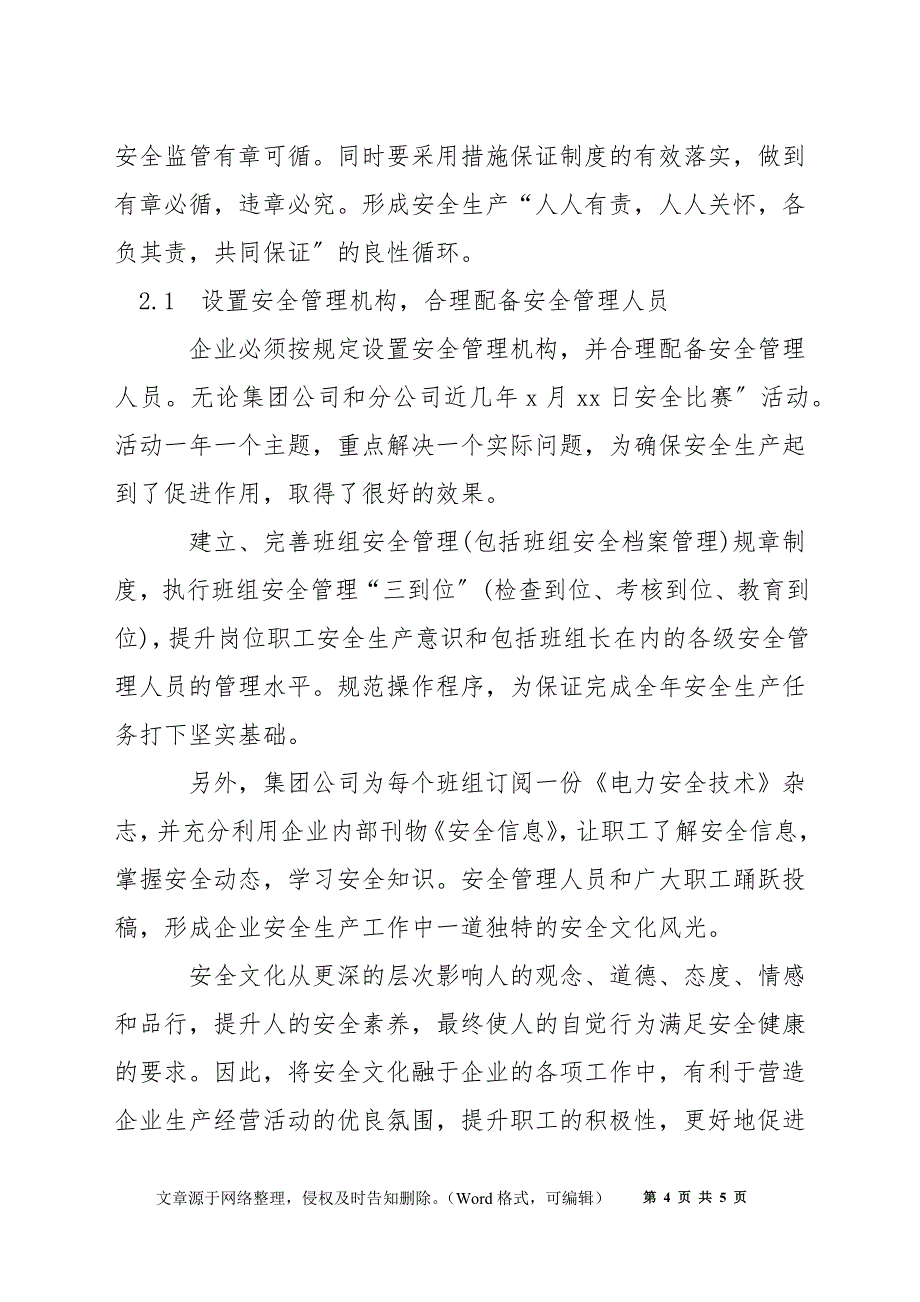 安全监管有章可循。同时要采用措施保证制度的有效落实，做到
有章必循，违章必究。形成安全生产“人人有责，人人关怀，各
负其责，共同保证〞的良性循环。
2.1　设置安全管理机构，合理配备安全管理人员
企业必须按规定设置安全管理机构，并合理配备安全管理
人员。无论集团公司和分公司近几年 x 月 xx 日安全比赛〞活动。
活动一年一个主题，重点解决一个实际问题，为确保安全生产起
到了促进作用，取得了很好的效果。
建立、完善班组安全管理(包括班组安全档案管理)规章制
度，执行班组安全管理“三到位〞(检查到位、考核到位、教育到
位)，提升岗位职工安全生产意识和包括班组长在内的各级安全管
理人员的管理水平。规范操作程序，为保证完成全年安全生产任
务打下坚实基础。
另外，集团公司为每个班组订阅一份《电力安全技术》杂
志，并充分利用企业内部刊物《安全信息》，让职工了解安全信息，
掌握安全动态，学习安全知识。安全管理人员和广大职工踊跃投
稿，形成企业安全生产工作中一道独特的安全文化风光。
安全文化从更深的层次影响人的观念、道德、态度、情感
和品行，提升人的安全素养，最终使人的自觉行为满足安全健康
的要求。因此，将安全文化融于企业的各项工作中，有利于营造
企业生产经营活动的优良氛围，提升职工的积极性，更好地促进
文章源于网络整理，侵权及时告知删除。（Word 格式，可编辑）　　第 4 页 共 5 页